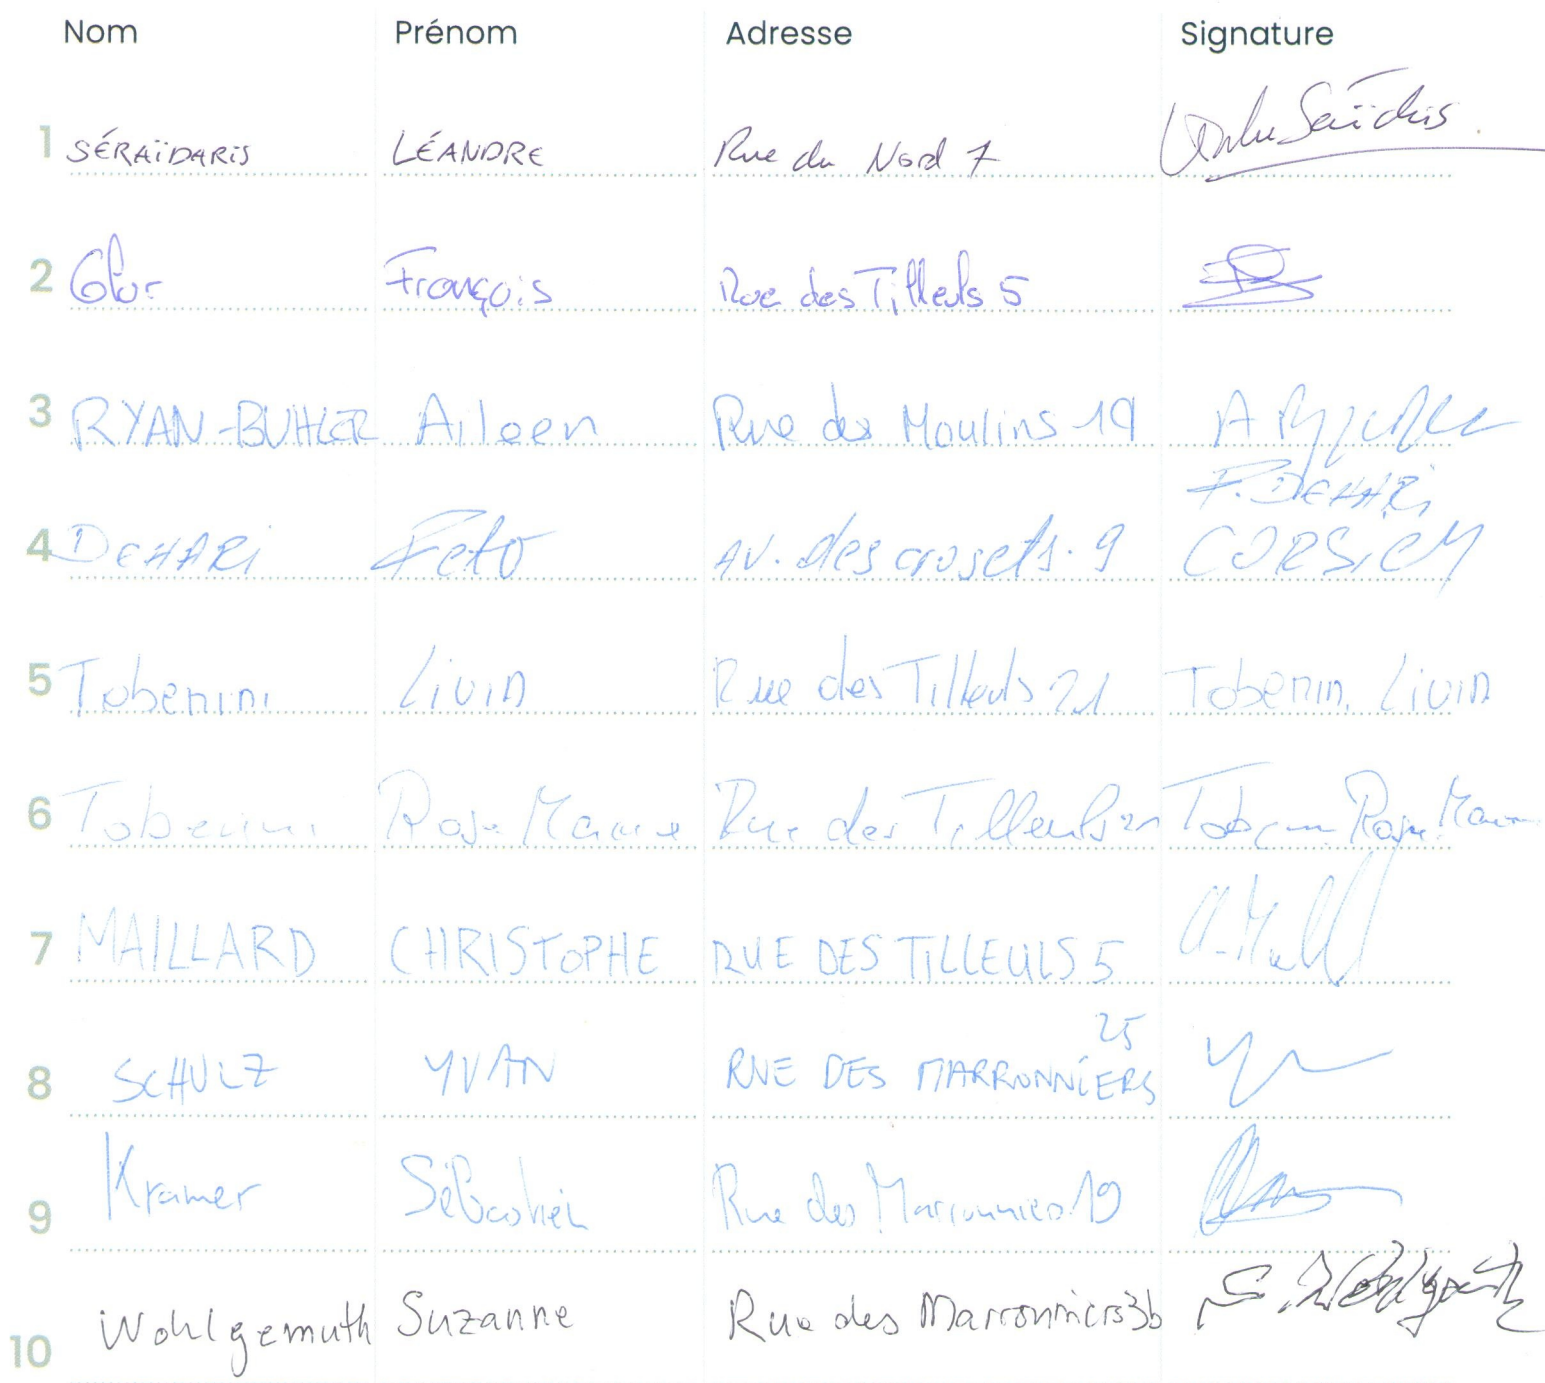 Nom Prénom Adresse Signature
1 SÉRAÏDARIS LÉANDRE Rue du Nord 7
2 Glur François Rue des Tilleuls 5
3 RYAN-BUHLER Aileen Rue des Moulins 19
F. DEHARi
4 DEHARi Feto AV. des crosets. 9
5 Tobenini Livin Rue des Tilleuls 21 Tobenin. Livin
6 Tobenini Rose Marie Rue des Tilleuls 21
7 MAILLARD CHRISTOPHE RUE DES TILLEULS 5
25
8 SCHULZ YVAN RUE DES MARRONNIERS
9 Kramer Sébastien Rue des Marronniers 19
10 Wohlgemuth Suzanne Rue des Marronniers 3b